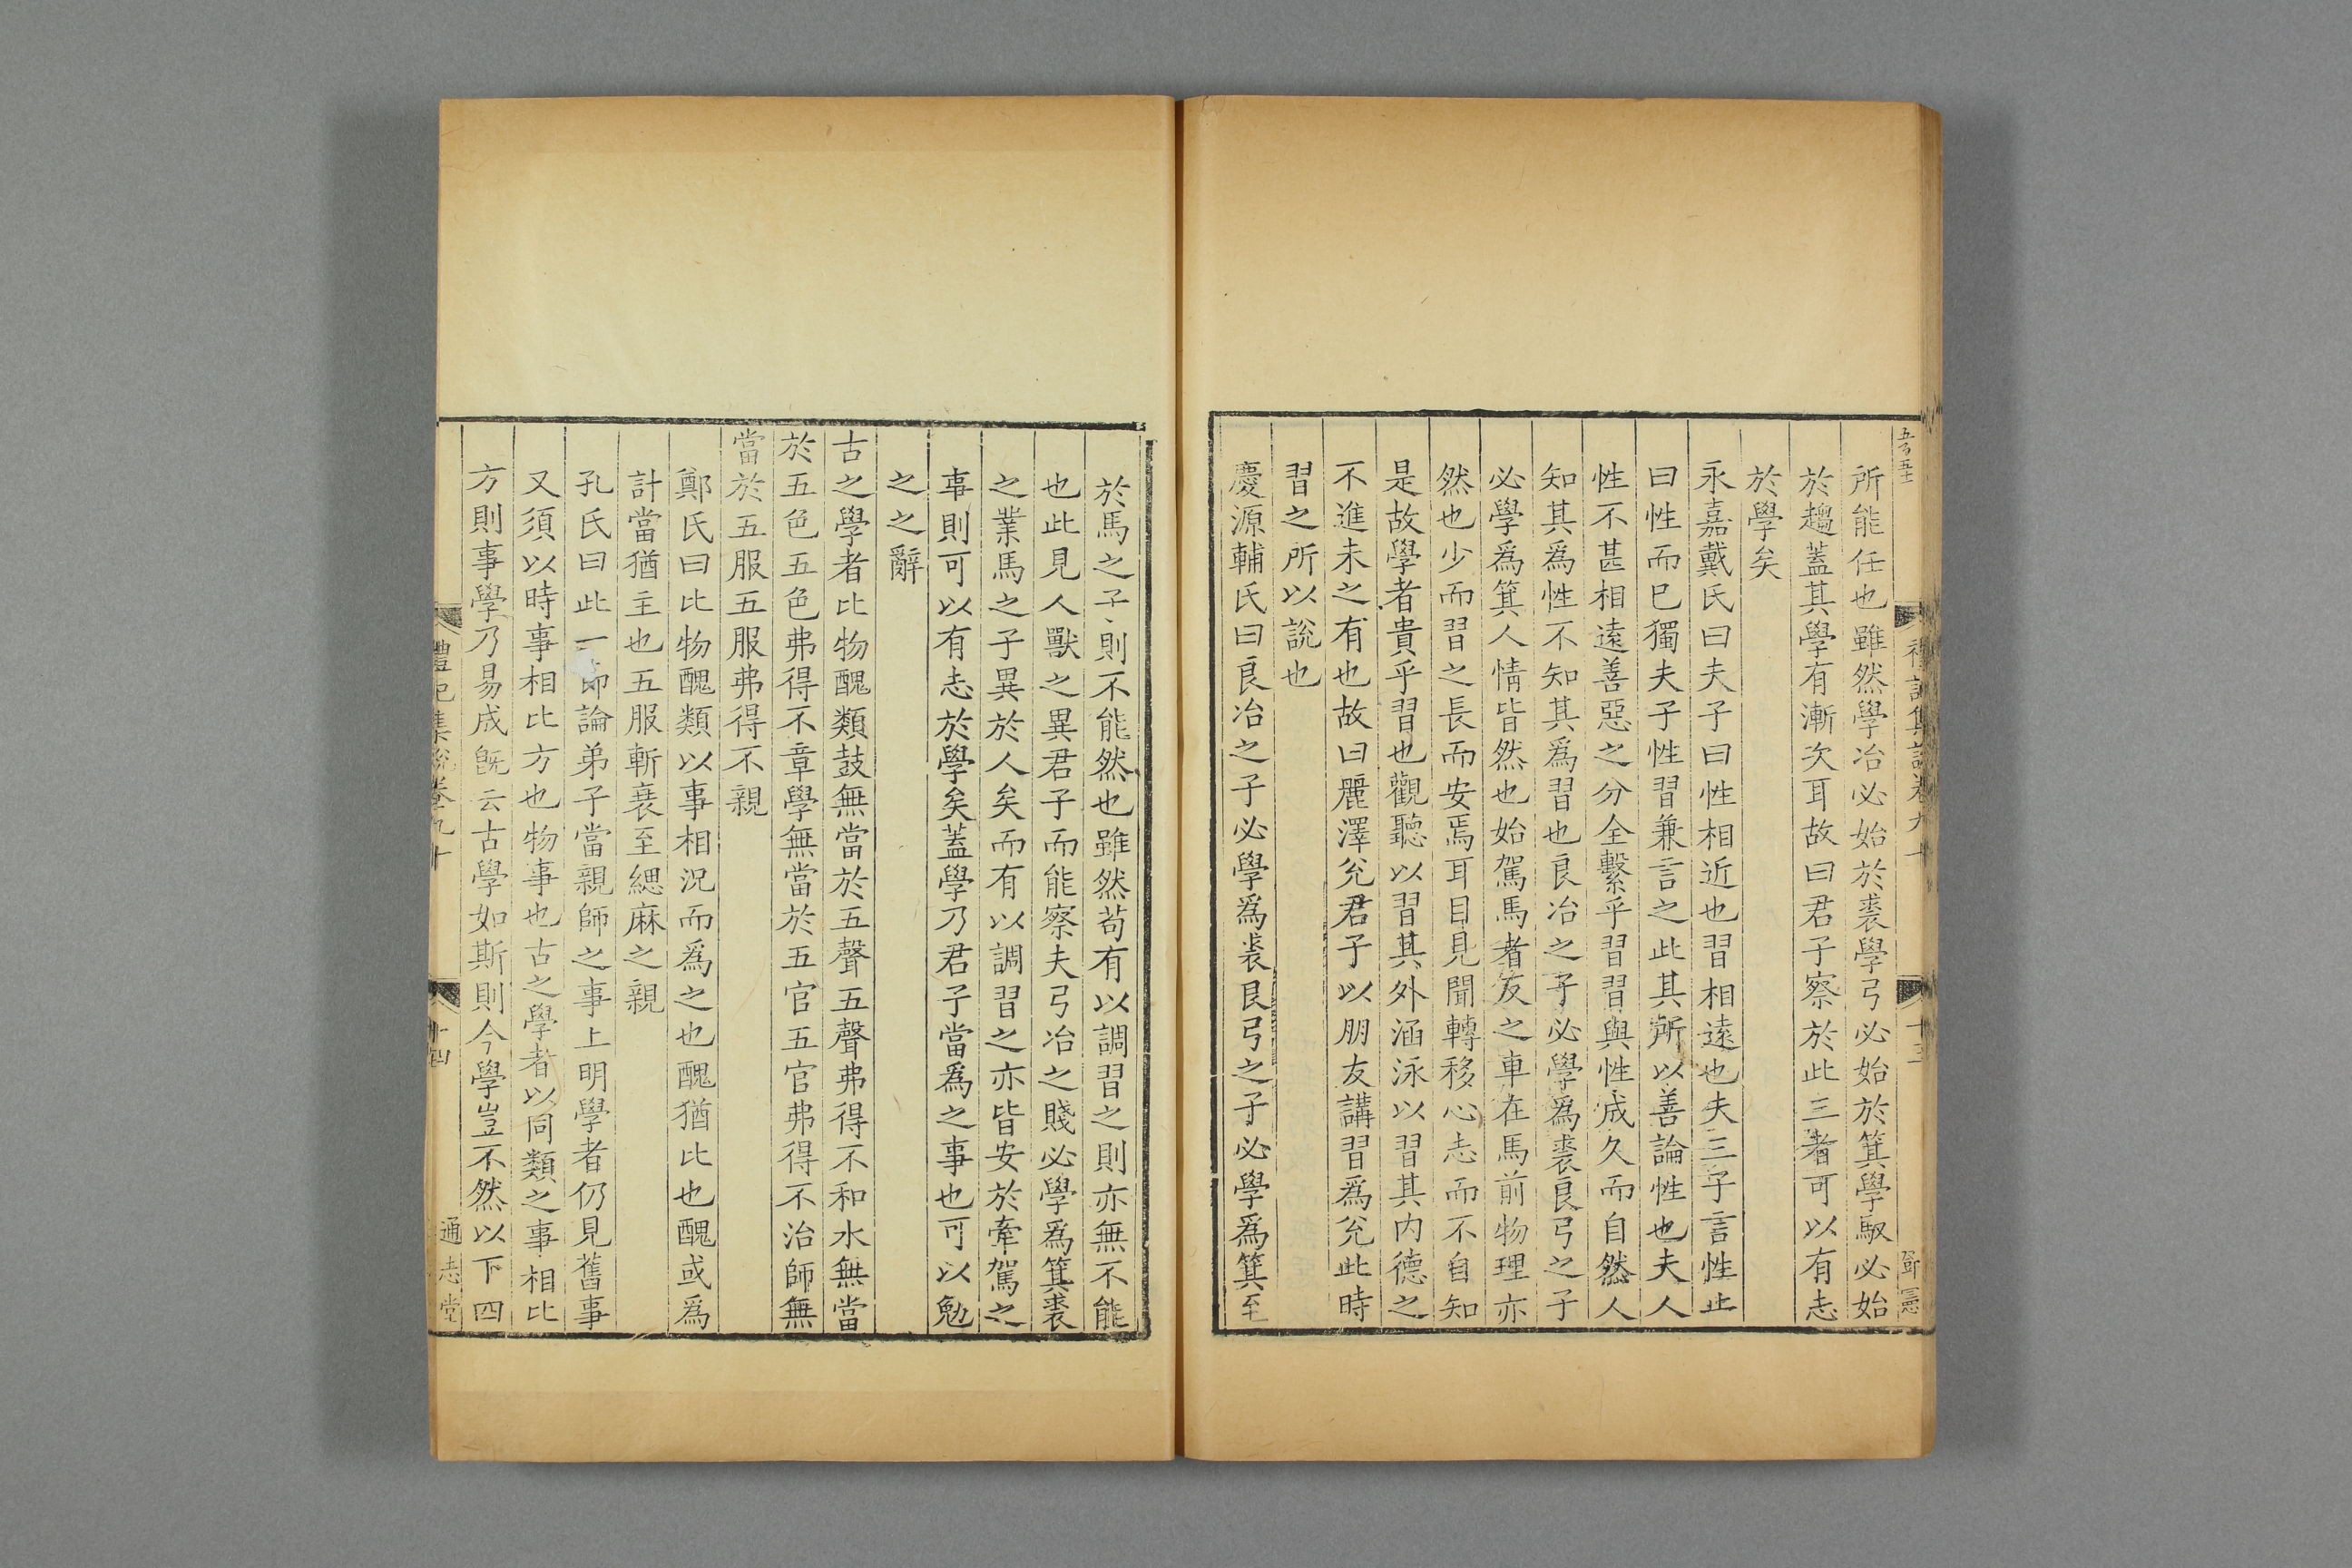 禮記集說卷九十
十三
所能任也雖然學冶必始於裘學弓必始於箕學馭必始
於趨蓋其學有漸次耳故曰君子察於此三者可以有志
於學矣
永嘉戴氏曰夫子曰性相近也習相遠也夫三子言性止
曰性而已獨夫子性習兼言之此其所以善論性也夫人
性不甚相遠善惡之分全繫乎習習與性成久而自然人
知其爲性不知其爲習也良冶之子必學爲裘良弓之子
必學爲箕人情皆然也始駕馬者反之車在馬前物理亦
然也少而習之長而安焉耳目見聞轉移心志而不自知
是故學者貴乎習也觀聽以習其外涵泳以習其内德之
不進未之有也故曰麗澤兊君子以朋友講習爲兊此時
習之所以說也
慶源輔氏曰良冶之子必學爲裘良弓之子必學爲箕至
於馬之子則不能然也雖然苟有以調習之則亦無不能
也此見人獸之異君子而能察夫弓冶之賤必學爲箕裘
之業馬之子異於人矣而有以調習之亦皆安於牽駕之
事則可以有志於學矣蓋學乃君子當爲之事也可以勉
之之辭
古之學者比物醜類鼓無當於五聲五聲弗得不和水無當
於五色五色弗得不章學無當於五官五官弗得不治師無
當於五服五服弗得不親
鄭氏曰比物醜類以事相況而爲之也醜猶比也醜或爲
計當猶主也五服斬衰至緦麻之親
孔氏曰此一節論弟子當親師之事上明學者仍見舊事
又須以時事相比方也物事也古之學者以同類之事相比
方則事學乃易成旣云古學如斯則今學豈不然以下四
禮記集說卷九十
十四
通志堂